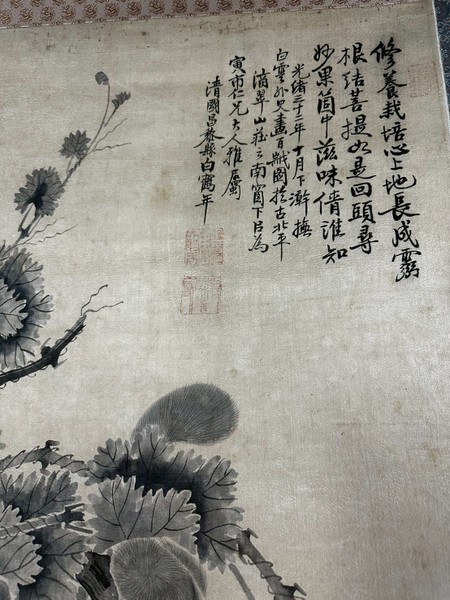 修養栽培心上地長成靈
根結菩提如是回頭尋
妙果箇中滋味倩誰知
光緒三十二年十月下澣撫
白雲外史畫百齡圖於古北平
滴翠山莊之南窗下臣為
寅市仁兄大人雅屬
清國昌黎縣白鶴年